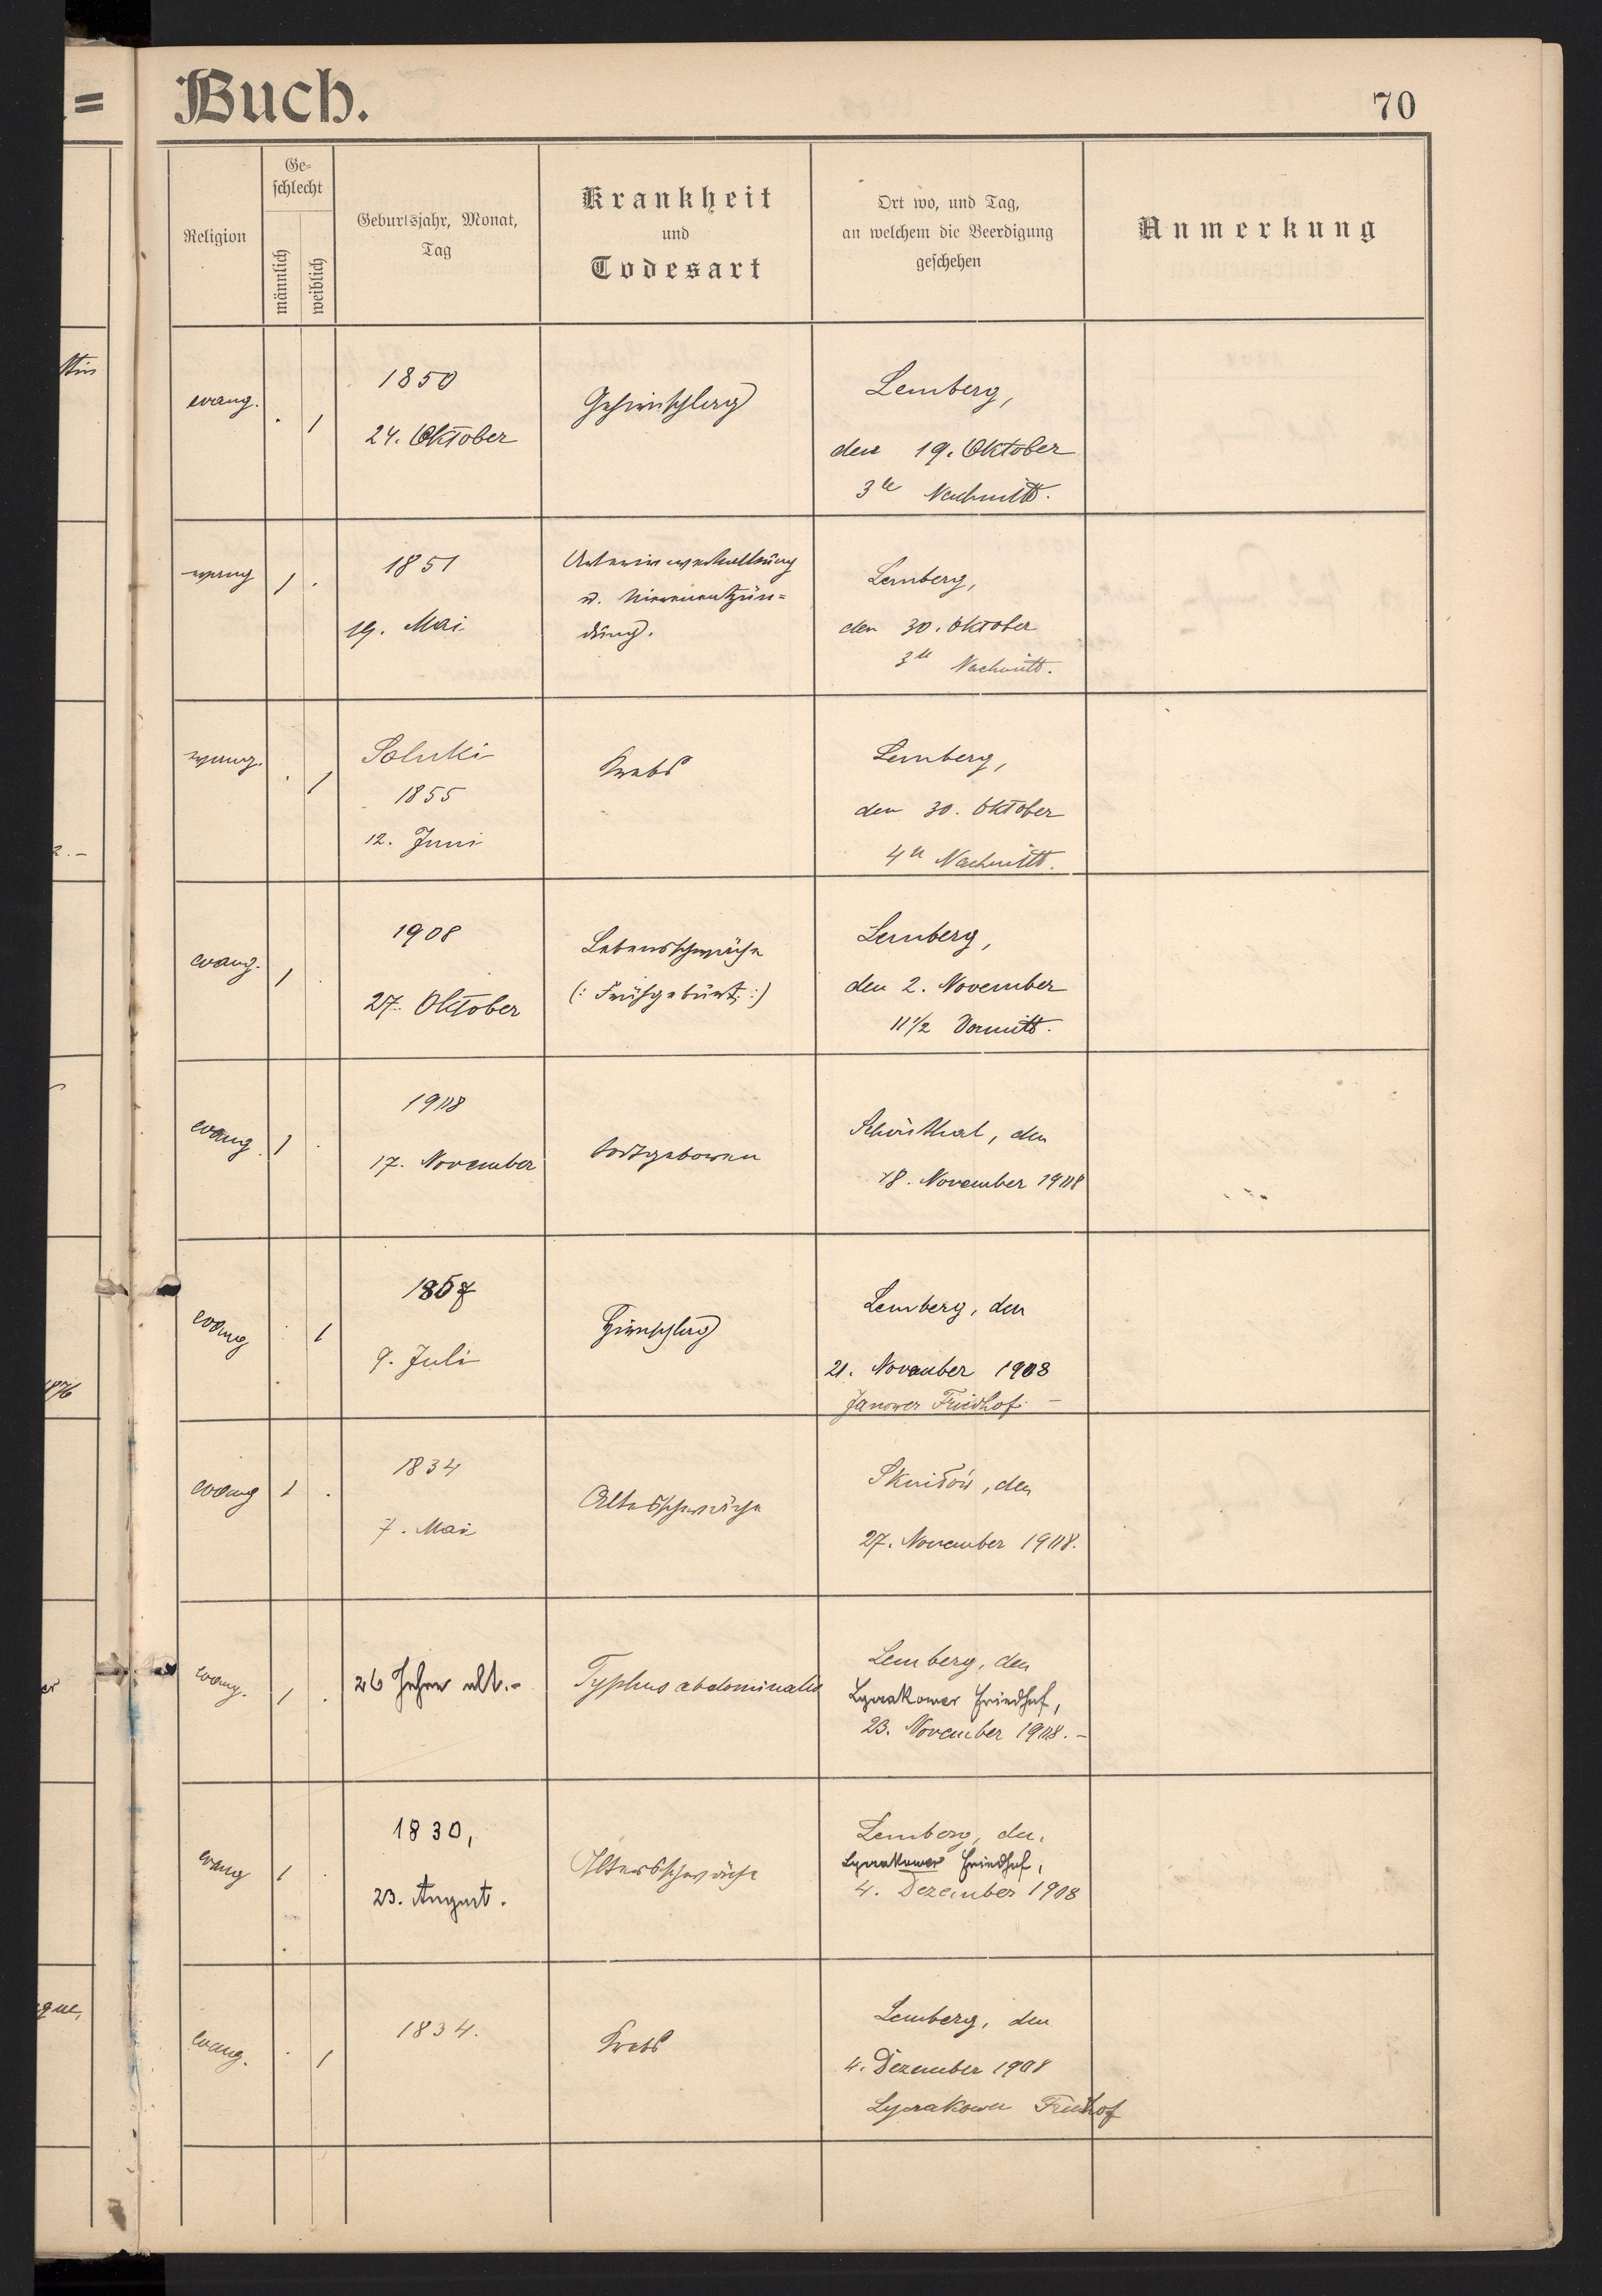 Buch.
70
Religion
Ge=
schlecht
männlich
weiblich
Geburtsjahr, Monat,
Tag
Krankheit
und
Todesart
Ort wo, und Tag,
an welchem die Beerdigung
geschehen
Anmerkung
evang. . 1
1850
24. Oktober
Gehirnschlag
Lemberg,
den 19. Oktober
3 Nachmitt.
evang 1 .
1851
19. Mai
Arterienverkalkung
u. Nierenentzün=
dung.
Lemberg,
den 30. Oktober
3 Nachmitt.
evang. . 1
1855
12. Juni
Krebs
Lemberg,
den 30. Oktober
4 Nachmitt.
evang. 1 .
1908
27. Oktober
Lebensschwäche
(: Frühgeburt :)
Lemberg,
den 2. November
11 1/2 Vormitt.
evang. 1 .
1908
17. November
totgeboren
Schönthal, den
18. November 1908
evang . 1
9. Juli
Hirnschlag
Lemberg, den
21. November 1908
Janower Friedhof. —
evang 1 .
1834
7. Mai
Altersschwäche
Skniłów, den
27. November 1908.
evang. 1 .
26 Jahre alt.-
Typhus abdominalis
Lemberg, den
Lyczakower Friedhof,
23. November 1908.-
evang 1 .
1830,
23. August.
Altersschwäche
Lemberg, den
Lyczakower Friedhof,
4. Dezember 1908
evang. . 1
1834.
Krebs
Lemberg, den
4. Dezember 1908
Lyczakower Friedhof